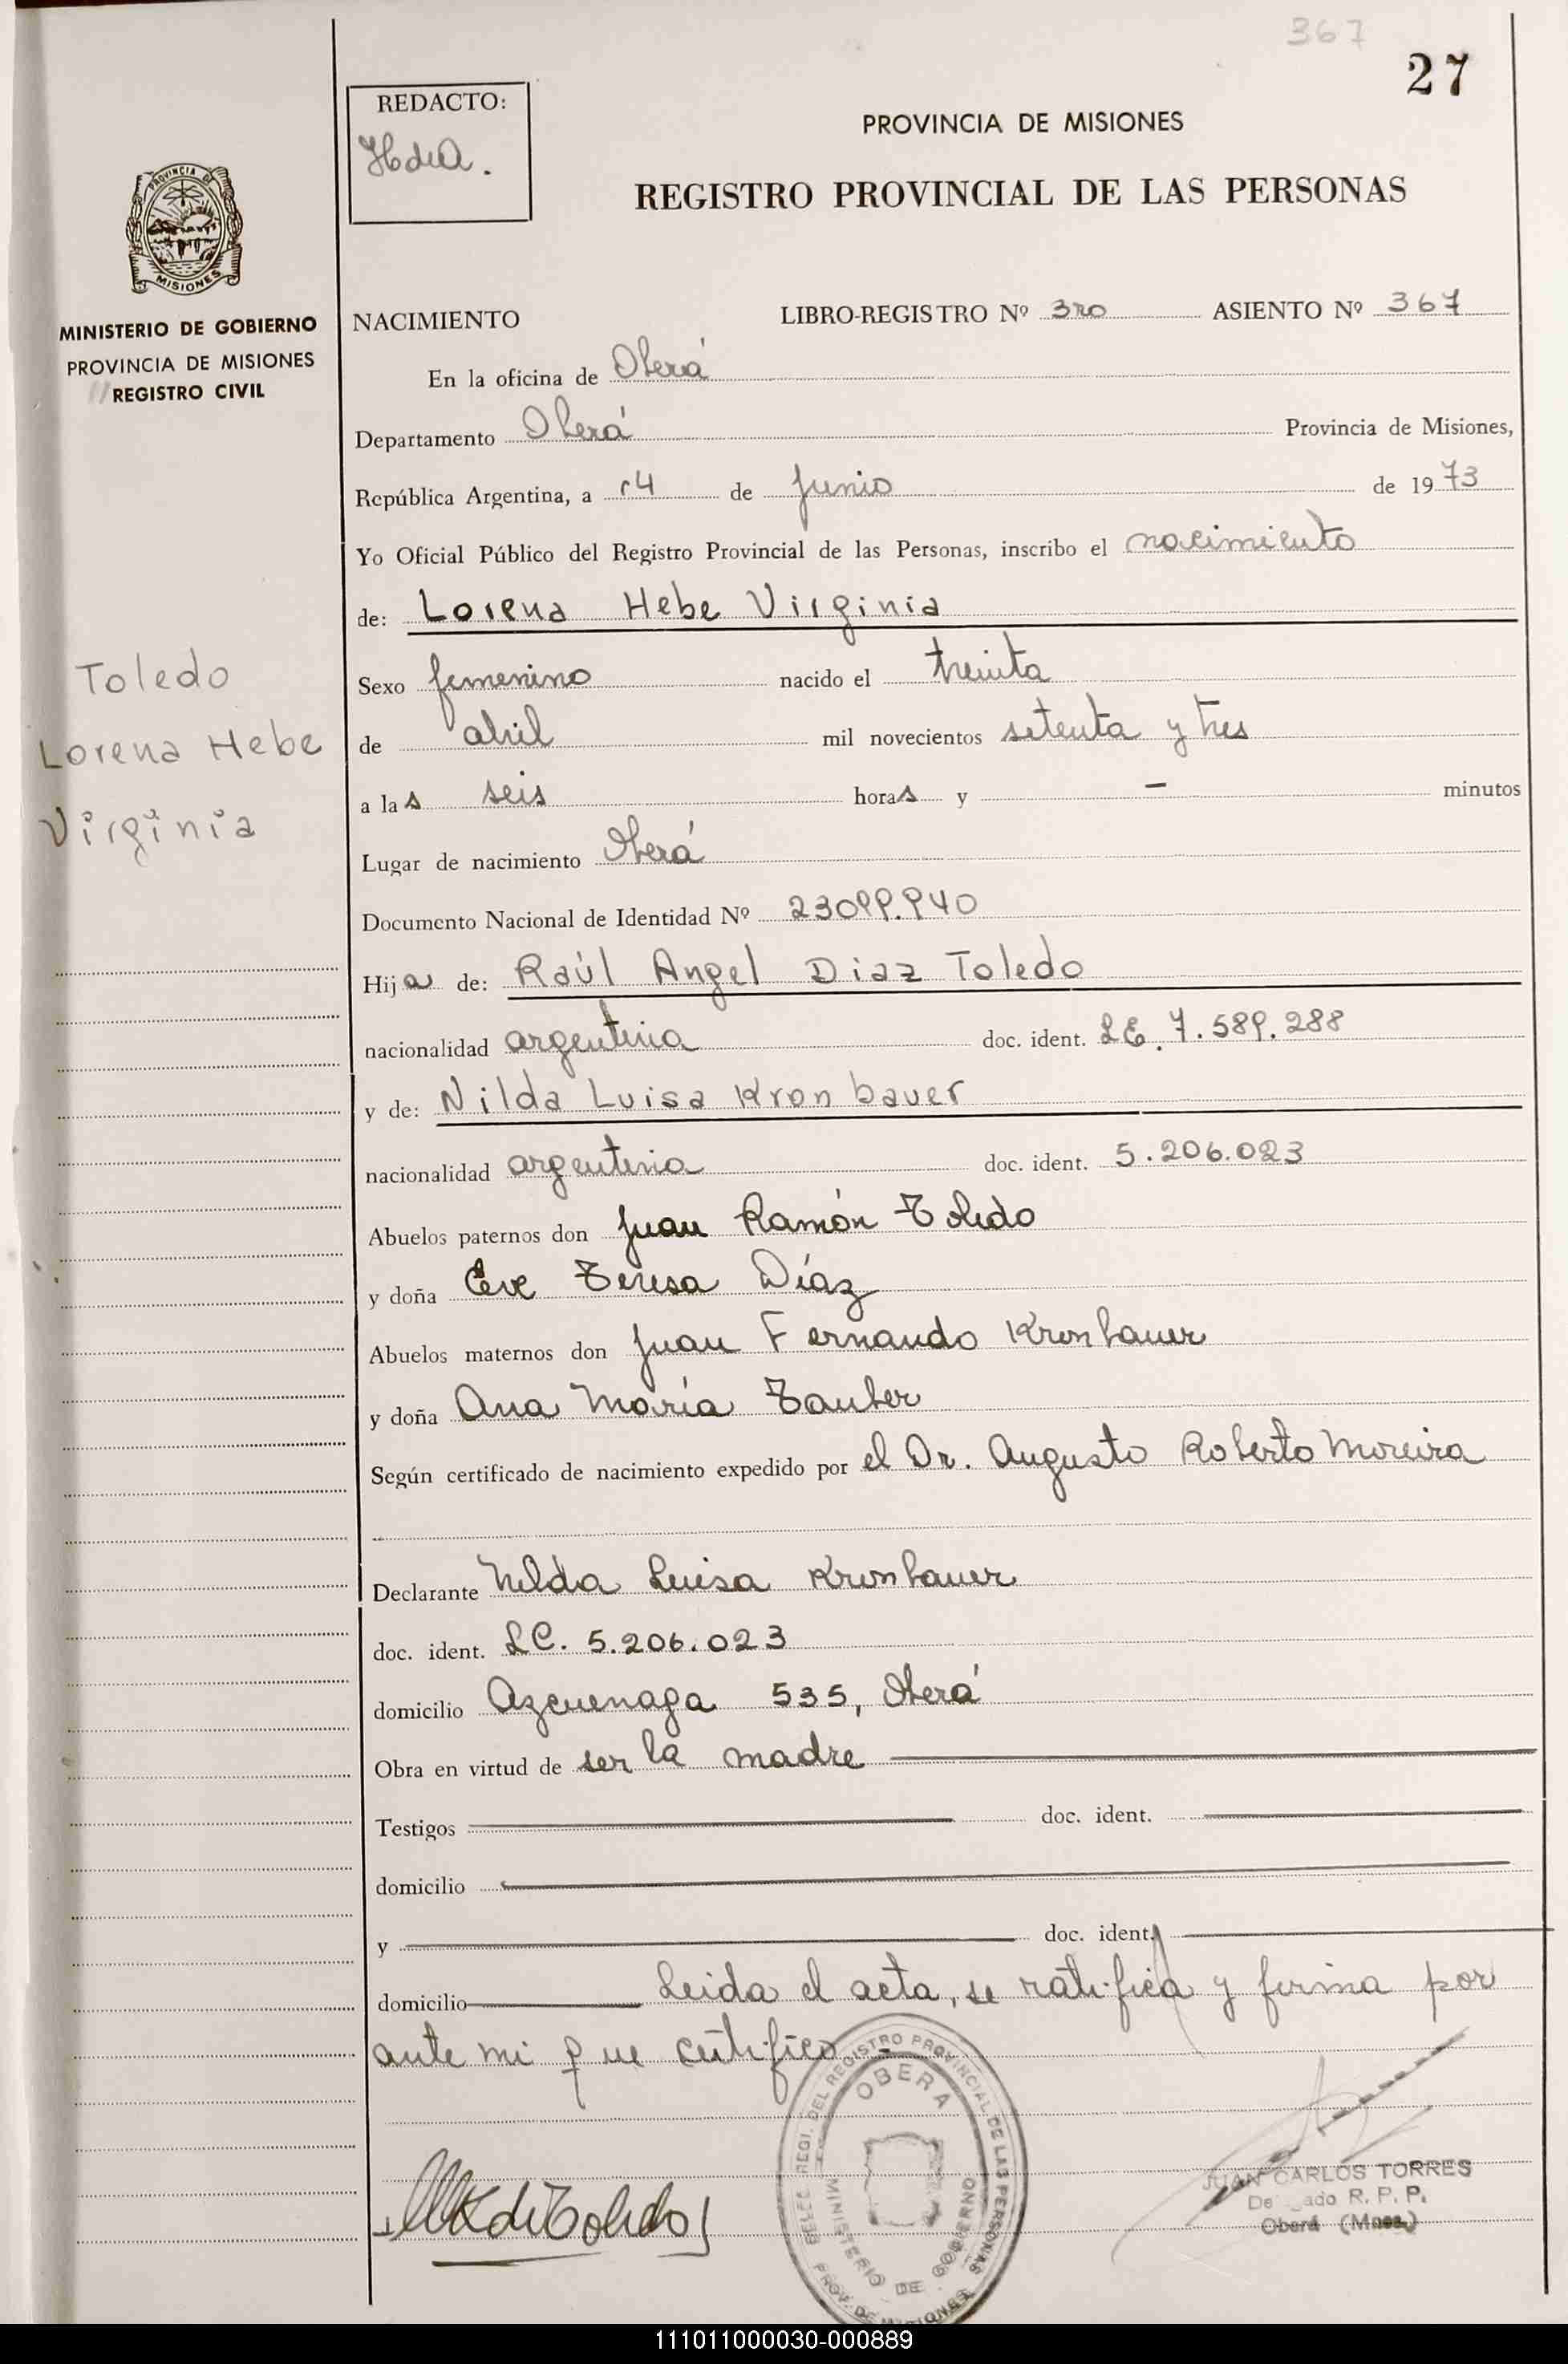 367
27
REDACTO:
HdeA.
PROVINCIA DE MISIONES
REGISTRO PROVINCIAL DE LAS PERSONAS
PROVINCIA DE
MISIONES
MINISTERIO DE GOBIERNO
PROVINCIA DE MISIONES
REGISTRO CIVIL
NACIMIENTO LIBRO-REGISTRO Nº 3ro ASIENTO Nº 367
En la oficina de Oberá
Departamento Oberá Provincia de Misiones,
República Argentina, a 14 de Junio de 1973
Yo Oficial Público del Registro Provincial de las Personas, inscribo el nacimiento
de: Lorena Hebe Virginia
Toledo
Lorena Hebe
Virginia
Sexo femenino nacido el treinta
de abril mil novecientos setenta y tres
a las seis horas y — minutos
Lugar de nacimiento Oberá
Documento Nacional de Identidad Nº 23099.940
Hija de: Raúl Angel Diaz Toledo
nacionalidad argentina doc. ident. LE. 7.589.288
y de: Nilda Luisa Kronbauer
nacionalidad argentina doc. ident. 5.206.023
Abuelos paternos don Juan Ramón Toledo
y doña Eve Teresa Díaz
Abuelos maternos don Juan Fernando Kronbauer
y doña Ana María Tauber
Según certificado de nacimiento expedido por el Dr. Augusto Roberto Moreira
Declarante Nilda Luisa Kronbauer
doc. ident. LC. 5.206.023
domicilio Azcuenaga 535, Oberá
Obra en virtud de ser la madre
Testigos doc. ident.
domicilio
y doc. ident.
domicilio Leida el acta, se ratifica y firma por
ante mi que certifico.-
NLKdeToledo
DELEG. REGI. DEL REGISTRO PROVINCIAL DE LAS PERSONAS
OBERA
MINISTERIO DE GOBIERNO
PROV. DE MISIONES
JUAN CARLOS TORRES
Delegado R. P. P.
Oberá (Mnes.)
111011000030-000889